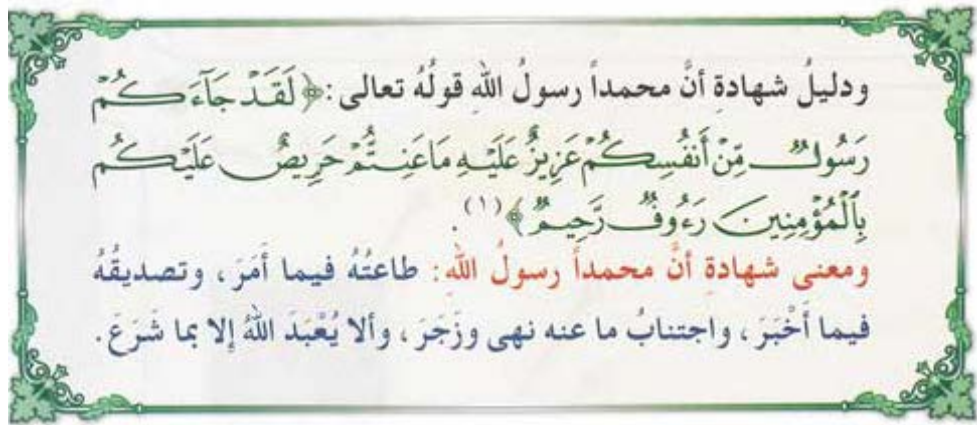 ودليلُ شهادةِ أنَّ محمداً رسولُ اللهِ قولُهُ تعالى: ﴿لَقَدْ جَآءَكُمْ
رَسُولٌ مِّنْ أَنفُسِكُمْ عَزِيزٌ عَلَيْهِ مَا عَنِتُّمْ حَرِيصٌ عَلَيْكُم
بِٱلْمُؤْمِنِينَ رَءُوفٌ رَّحِيمٌ﴾(١).
ومعنى شهادةِ أنَّ محمداً رسولُ اللهِ: طاعتُهُ فيما أَمَرَ، وتصديقُهُ
فيما أَخْبَرَ، واجتنابُ ما عنه نهى وزَجَرَ، وألا يُعْبَدَ اللهُ إلا بما شَرَعَ.